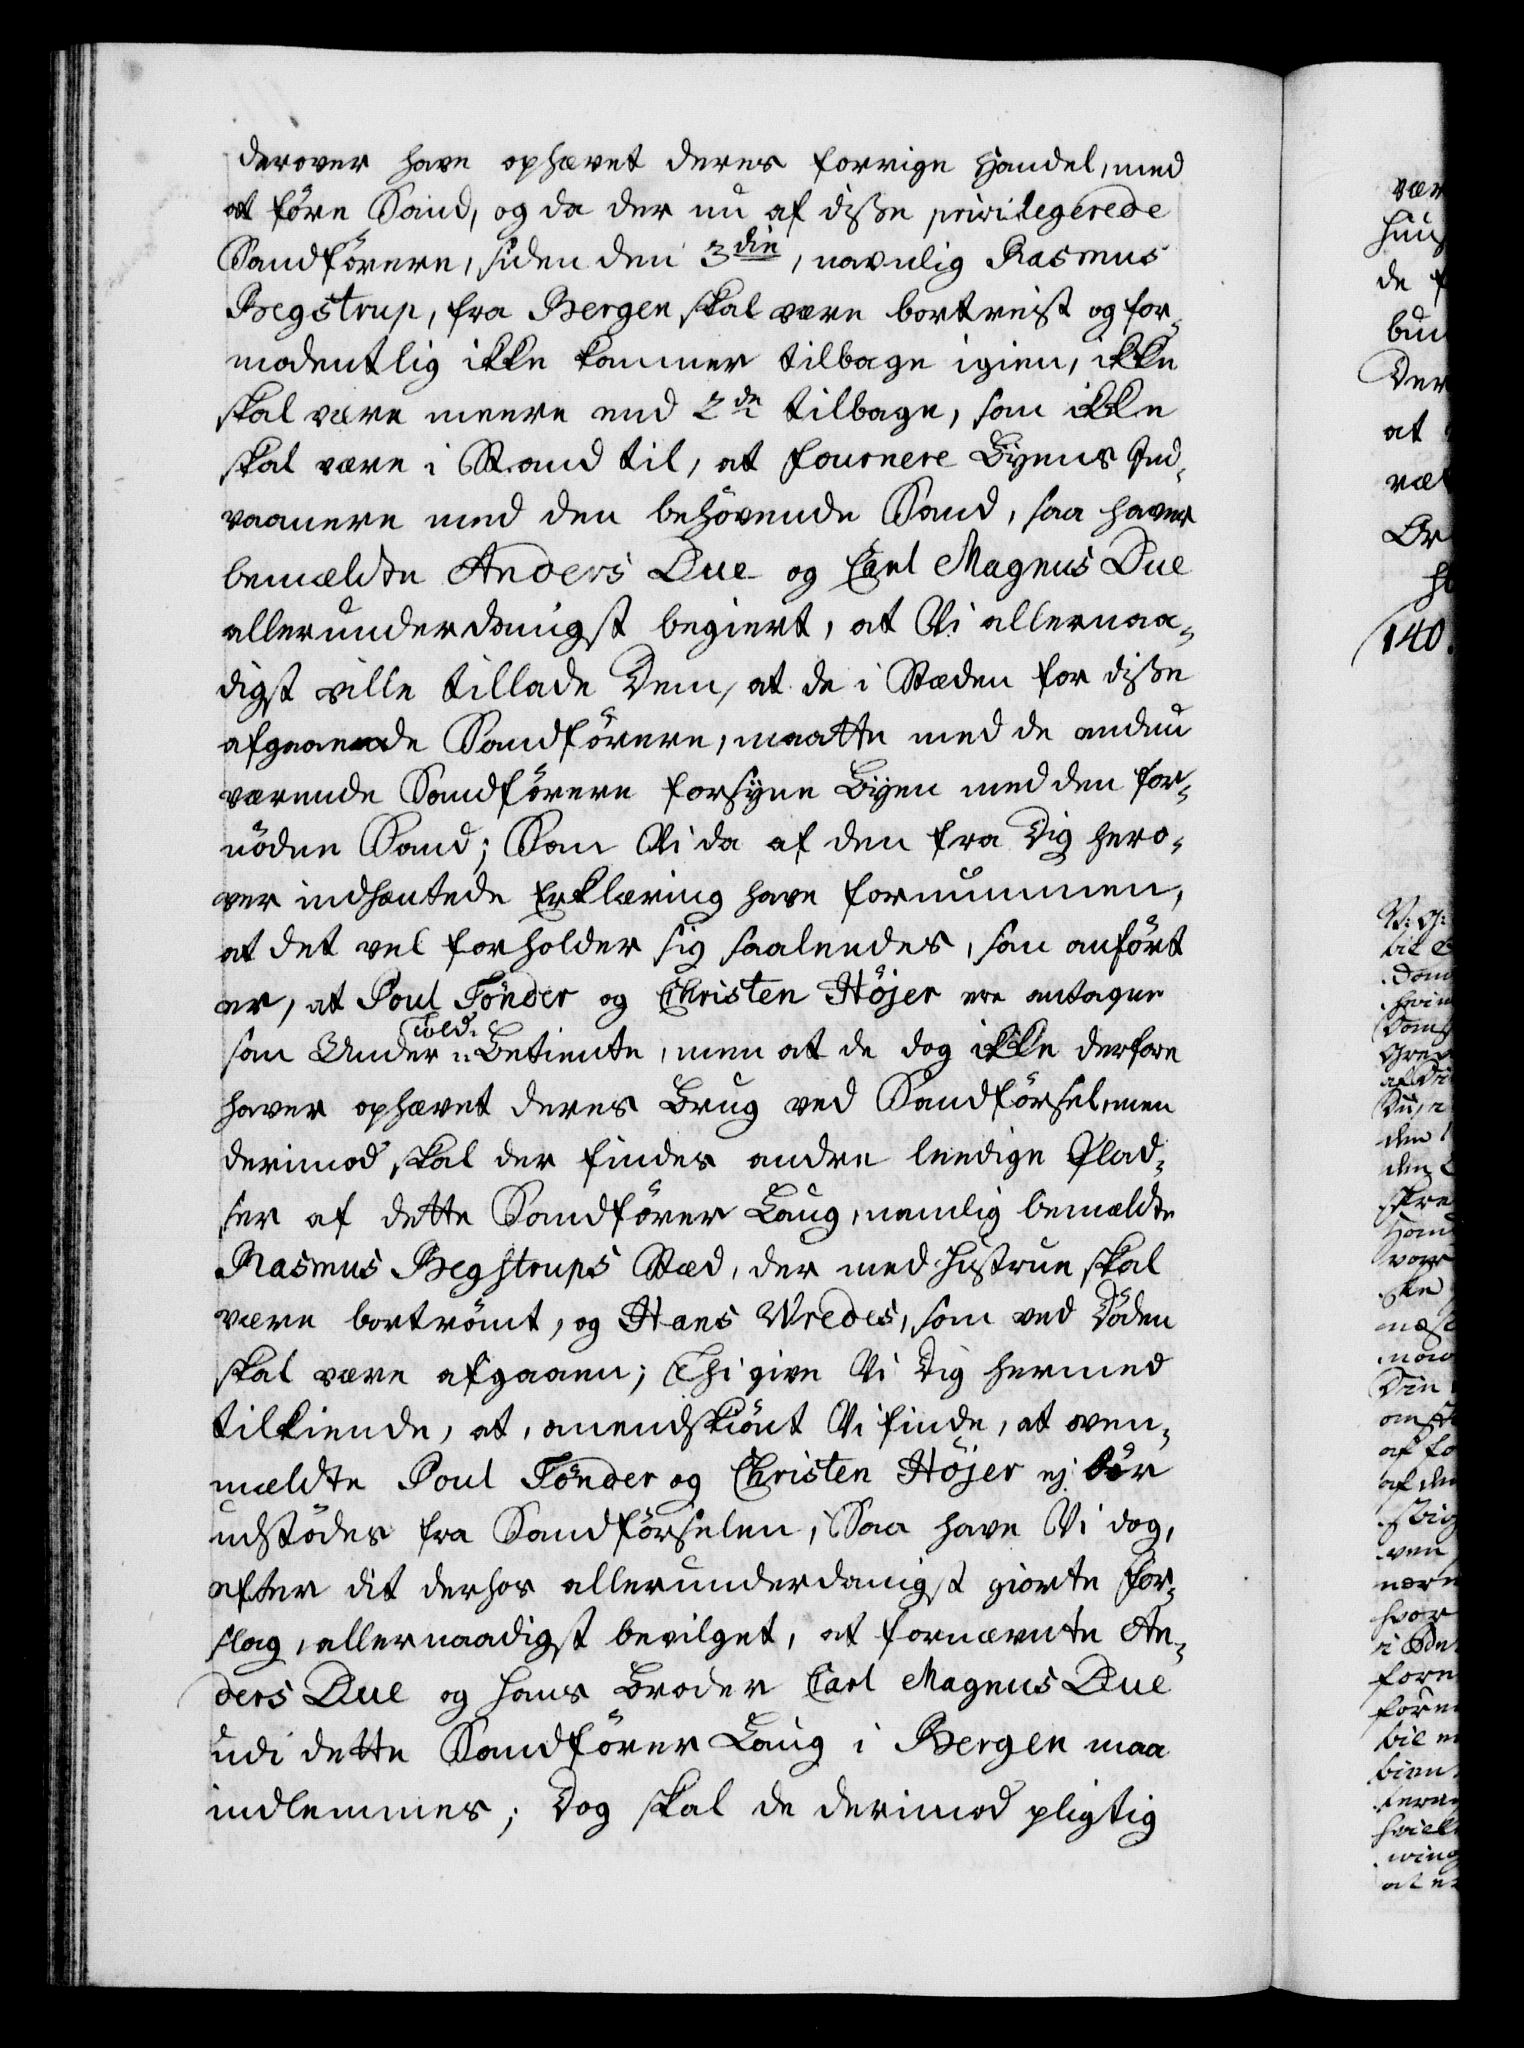 derover have ophævet deres forrige Handel, med
at före Sand, og da der nu af disse privilegerede
Sandförere, siden den 3die, navnlig Rasmus
Begstrup, fra Bergen skal være bortreist og for-
modentlig ikke kommer tilbage igien, ikke
skal være meere end 2de tilbage, som ikke
skal være i Stand til, at fournere Byens Ind-
vaanere med den behövende Sand, saa haver
bemældte Anders Due og Carl Magnus Due
allerunderdanigst begiert, at Vi allernaa-
digst ville tillade Dem, at de i Stæden for disse
afgaaende Sandförere, maatte med de endnu
værende Sandförere forsyne Byen med den for-
nöden Sand; Som Vi da af den fra Dig hero-
ver indhentede Erklæring have fornummen,
at det vel forholder sig saaleedes, som anfört
er, at Poul Tönder og Christen Höjer ere antagne
som Under Told-Betiente, men at de dog ikke derfore
haver ophævet deres Brug ved Sandförsel, men
derimod skal der findes andre leedige Plad-
ser af dette Sandförer Laug, nemlig bemældte
Rasmus Begstrups Stæd, der med Hustrue skal
være bortrömt, og Hans Wredes, som ved Döden
skal være afgaaen; Thi give Vi Dig hermed
tilkiende, at, omendskiönt Vi finde, at oven-
mældte Poul Tönder og Christen Höjer ej bör
udstödes fra Sandförselen, Saa have Vi dog,
efter dit derhos allerunderdanigst giorte For-
slag, allernaadigst bevilget, at fornævnte An-
ders Due og hans Broder Carl Magnus Due
udi dette Sandförer Laug i Bergen maa
indlemmes; Dog skal de derimod pligtig
140.